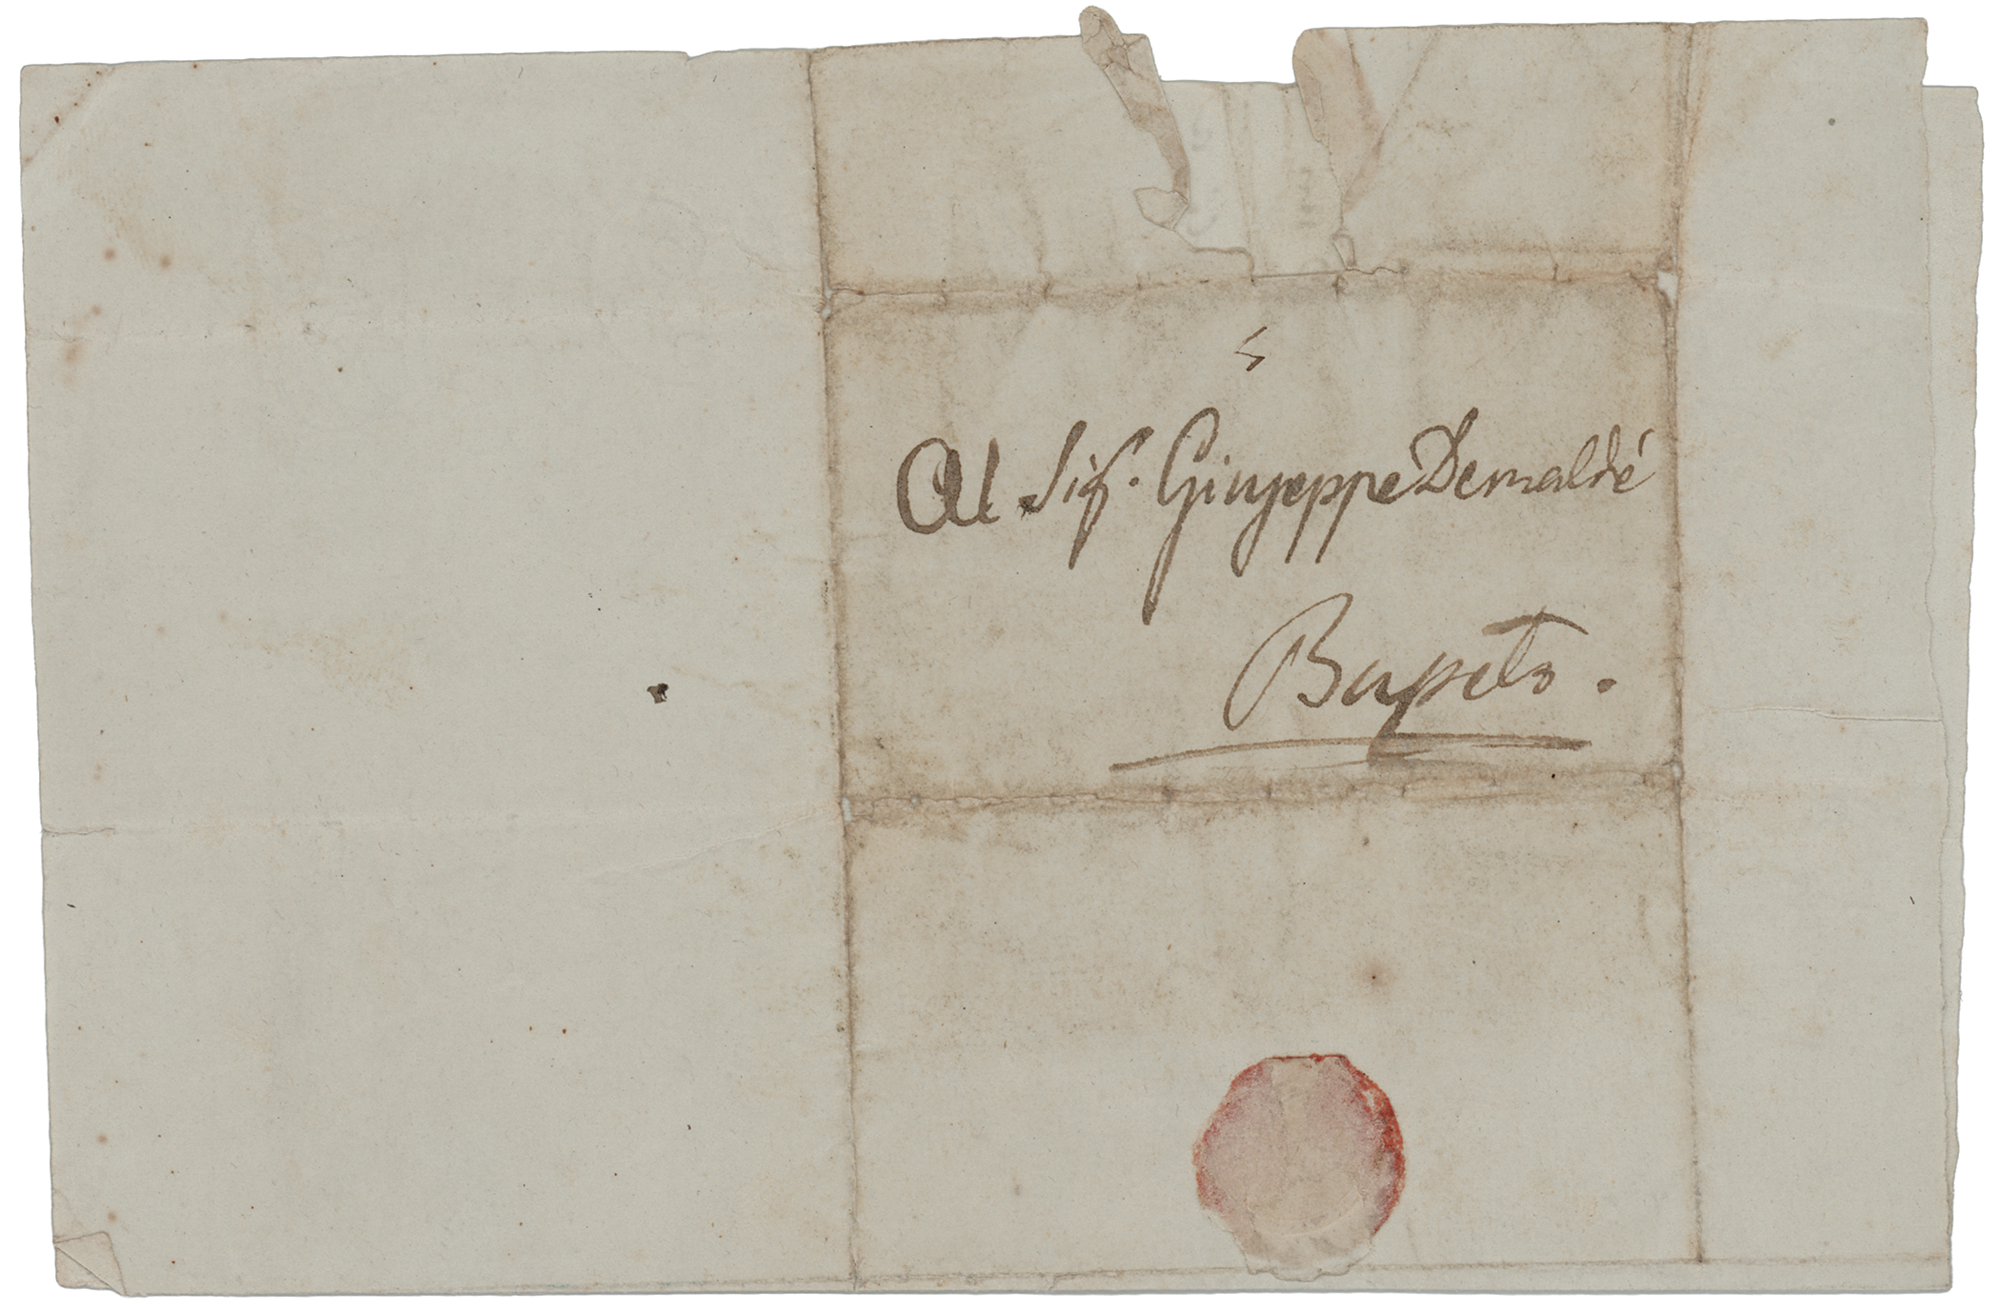 Al Sig. Giuseppe Demaldé
Busseto.